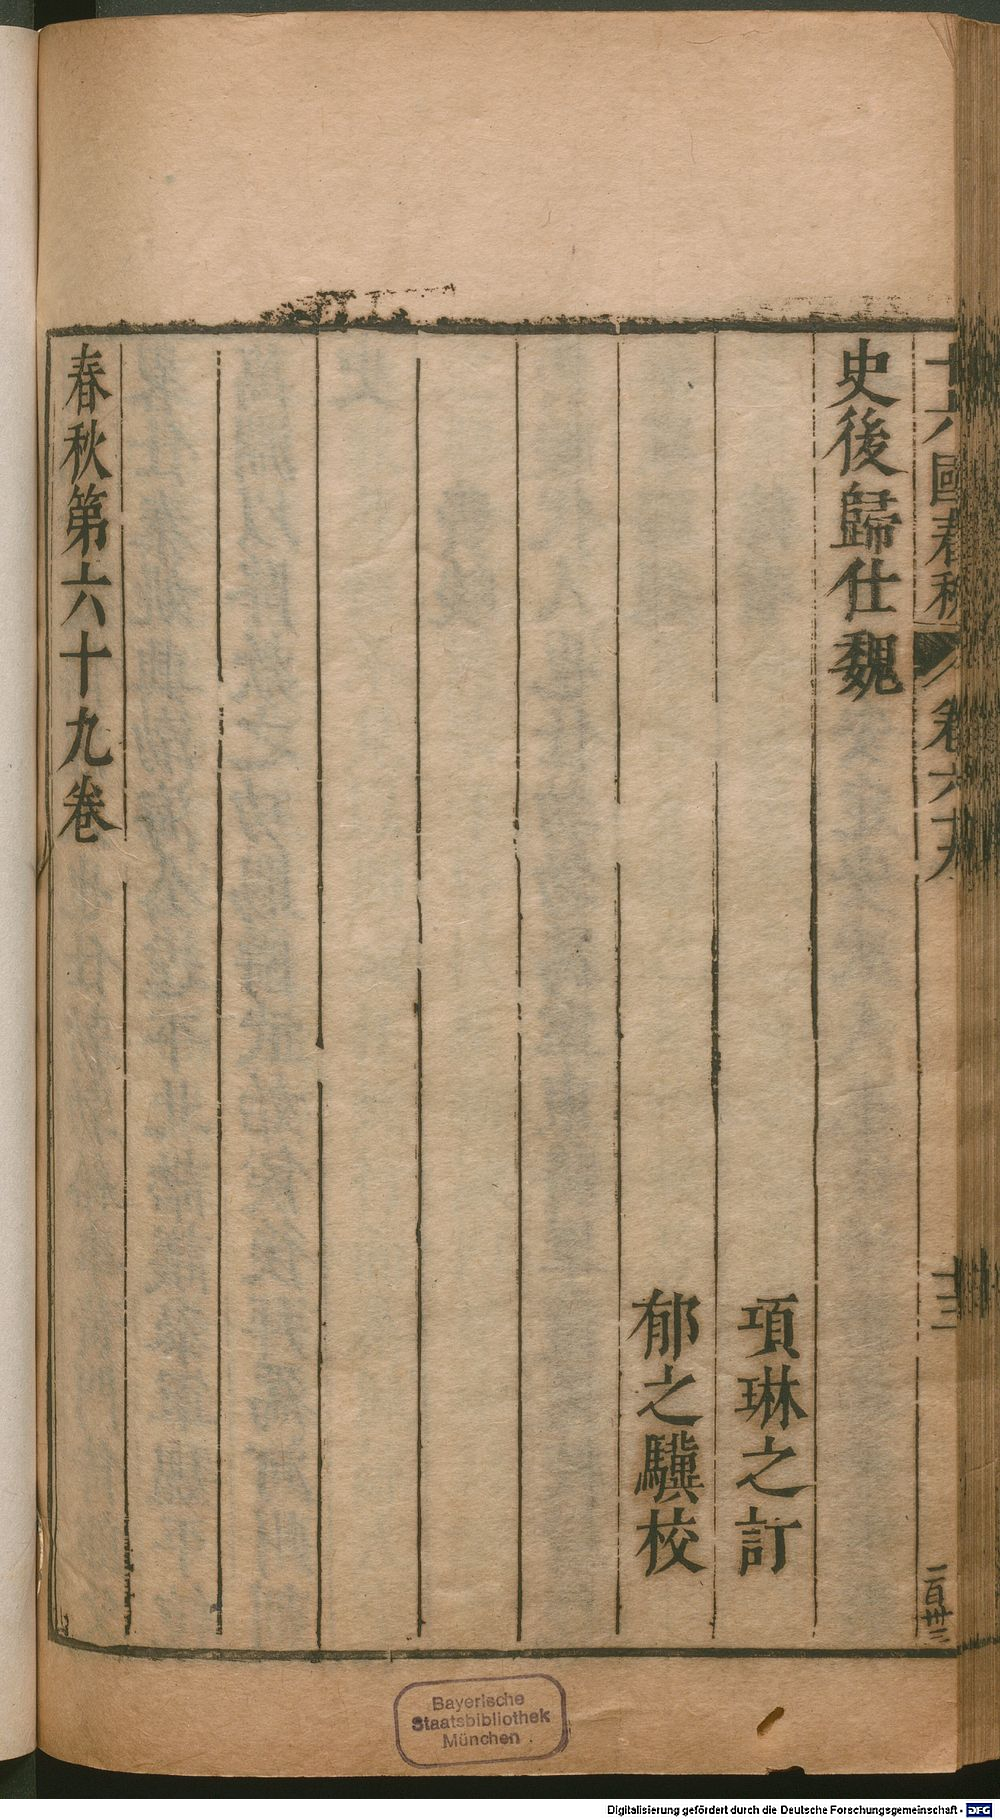 十六國春秋 卷六十九 十三 一百卅三
史後歸仕魏
項琳之訂
郁之驥校
春秋第六十九卷
Bayerische
Staatsbibliothek
München
Digitalisierung gefördert durch die Deutsche Forschungsgemeinschaft - DFG